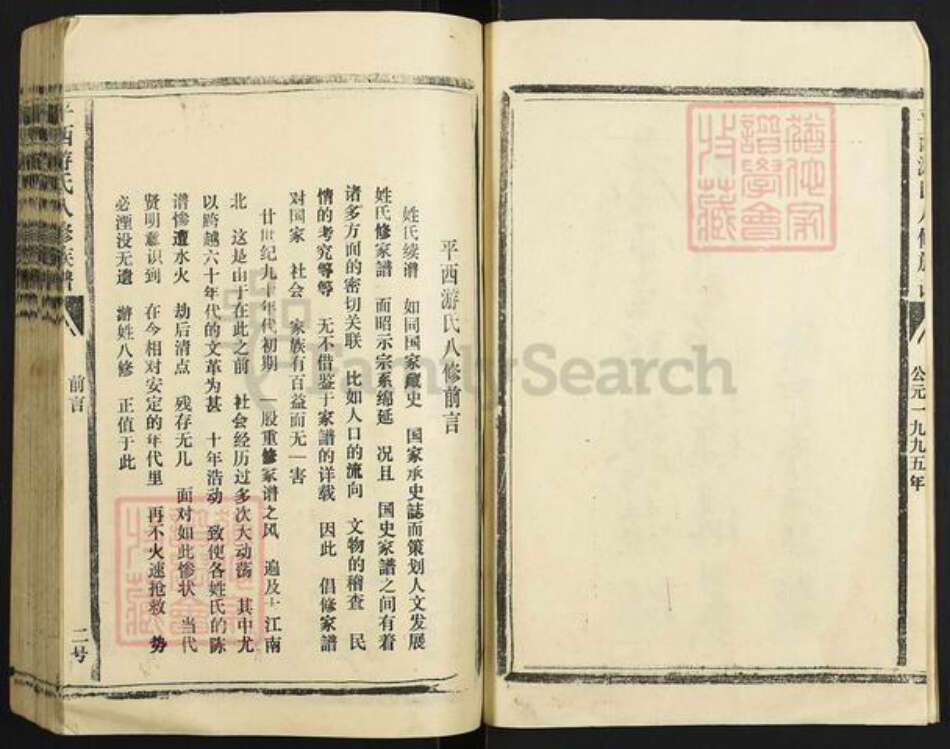 公元一九九五年
平西游氏八修前言
姓氏续谱　如同国家藏史　国家承史誌而策划人文发展
姓氏修家譜　而昭示宗系绵延　况且　国史家譜之间有着
诸多方面的密切关联　比如人口的流向　文物的稽查　民
情的考究等等　无不借鉴于家譜的详载　因此　倡修家譜
对国家　社会　家族有百益而无一害
廿世纪九十年代初期　一股重修家谱之风　遍及大江南
北　这是由于在此之前　社会经历过多次大动荡　其中尤
以跨越六十年代的文革为甚　十年浩动　致使各姓氏的陈
谱惨遭水火　劫后清点　残存无几　面对如此惨状　当代
贤明意识到　在今相对安定的年代里　再不火速抢救　势
必湮没无遗　游姓八修　正值于此
平西游氏八修族譜
前言
二号
FamilySearch